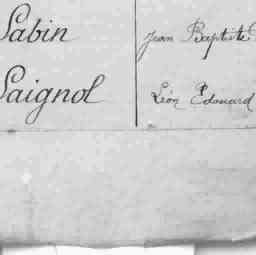 Sabin Jean Baptiste
Saignol Léon Edouard